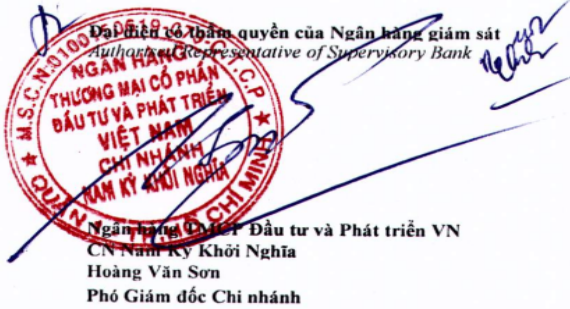 Đại diện có thẩm quyền của Ngân hàng giám sát
Authorized Representative of Supervisory Bank
NGÂN HÀNG
THƯƠNG MẠI CỔ PHẦN
ĐẦU TƯ VÀ PHÁT TRIỂN
VIỆT NAM
CHI NHÁNH
NAM KỲ KHỞI NGHĨA
Ngân hàng TMCP Đầu tư và Phát triển VN
CN Nam Kỳ Khởi Nghĩa
Hoàng Văn Sơn
Phó Giám đốc Chi nhánh